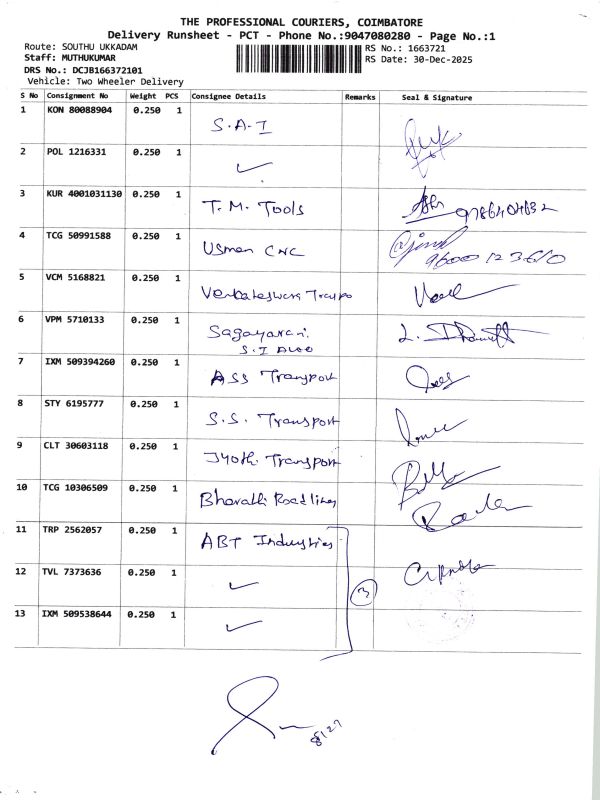 THE PROFESSIONAL COURIERS, COIMBATORE
Delivery Runsheet - PCT - Phone No.:9047080280 - Page No.:1
Route: SOUTHU UKKADAM RS No.: 1663721
Staff: MUTHUKUMAR RS Date: 30-Dec-2025
DRS No.: DCJB166372101
Vehicle: Two Wheeler Delivery
S No Consignment No Weight PCS Consignee Details Remarks Seal & Signature
1 KON 80088904 0.250 1 S.A.I
2 POL 1216331 0.250 1 ✓
3 KUR 4001031130 0.250 1 T.M. Tools
4 TCG 50991588 0.250 1 Usman CNC
5 VCM 5168821 0.250 1 Venkateswara
6 VPM 5710133 0.250 1
7 IXM 509394260 0.250 1 ASS Transport
8 STY 6195777 0.250 1 S.S. Transport
9 CLT 30603118 0.250 1 Jyothi Transport
10 TCG 10306509 0.250 1 Bharathi Roadlines
11 TRP 2562057 0.250 1 ABT Industries
12 TVL 7373636 0.250 1 ✓ 3
13 IXM 509538644 0.250 1 ✓